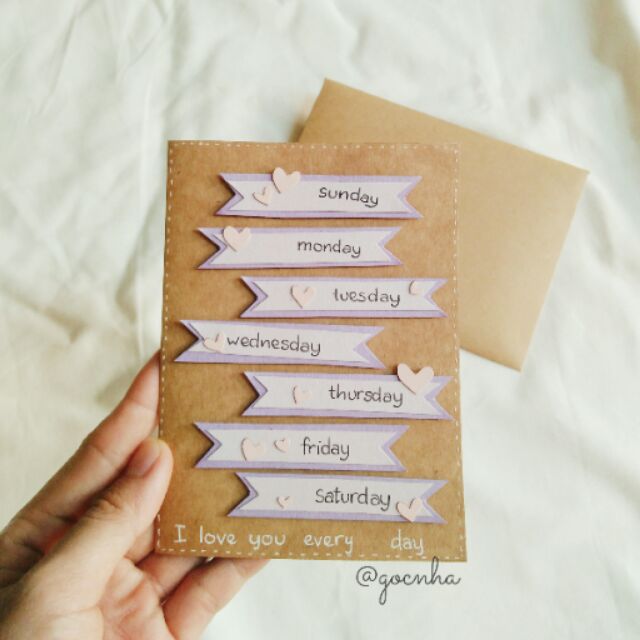 sunday
monday
tuesday
wednesday
thursday
friday
saturday
I love you every day
@gocnha